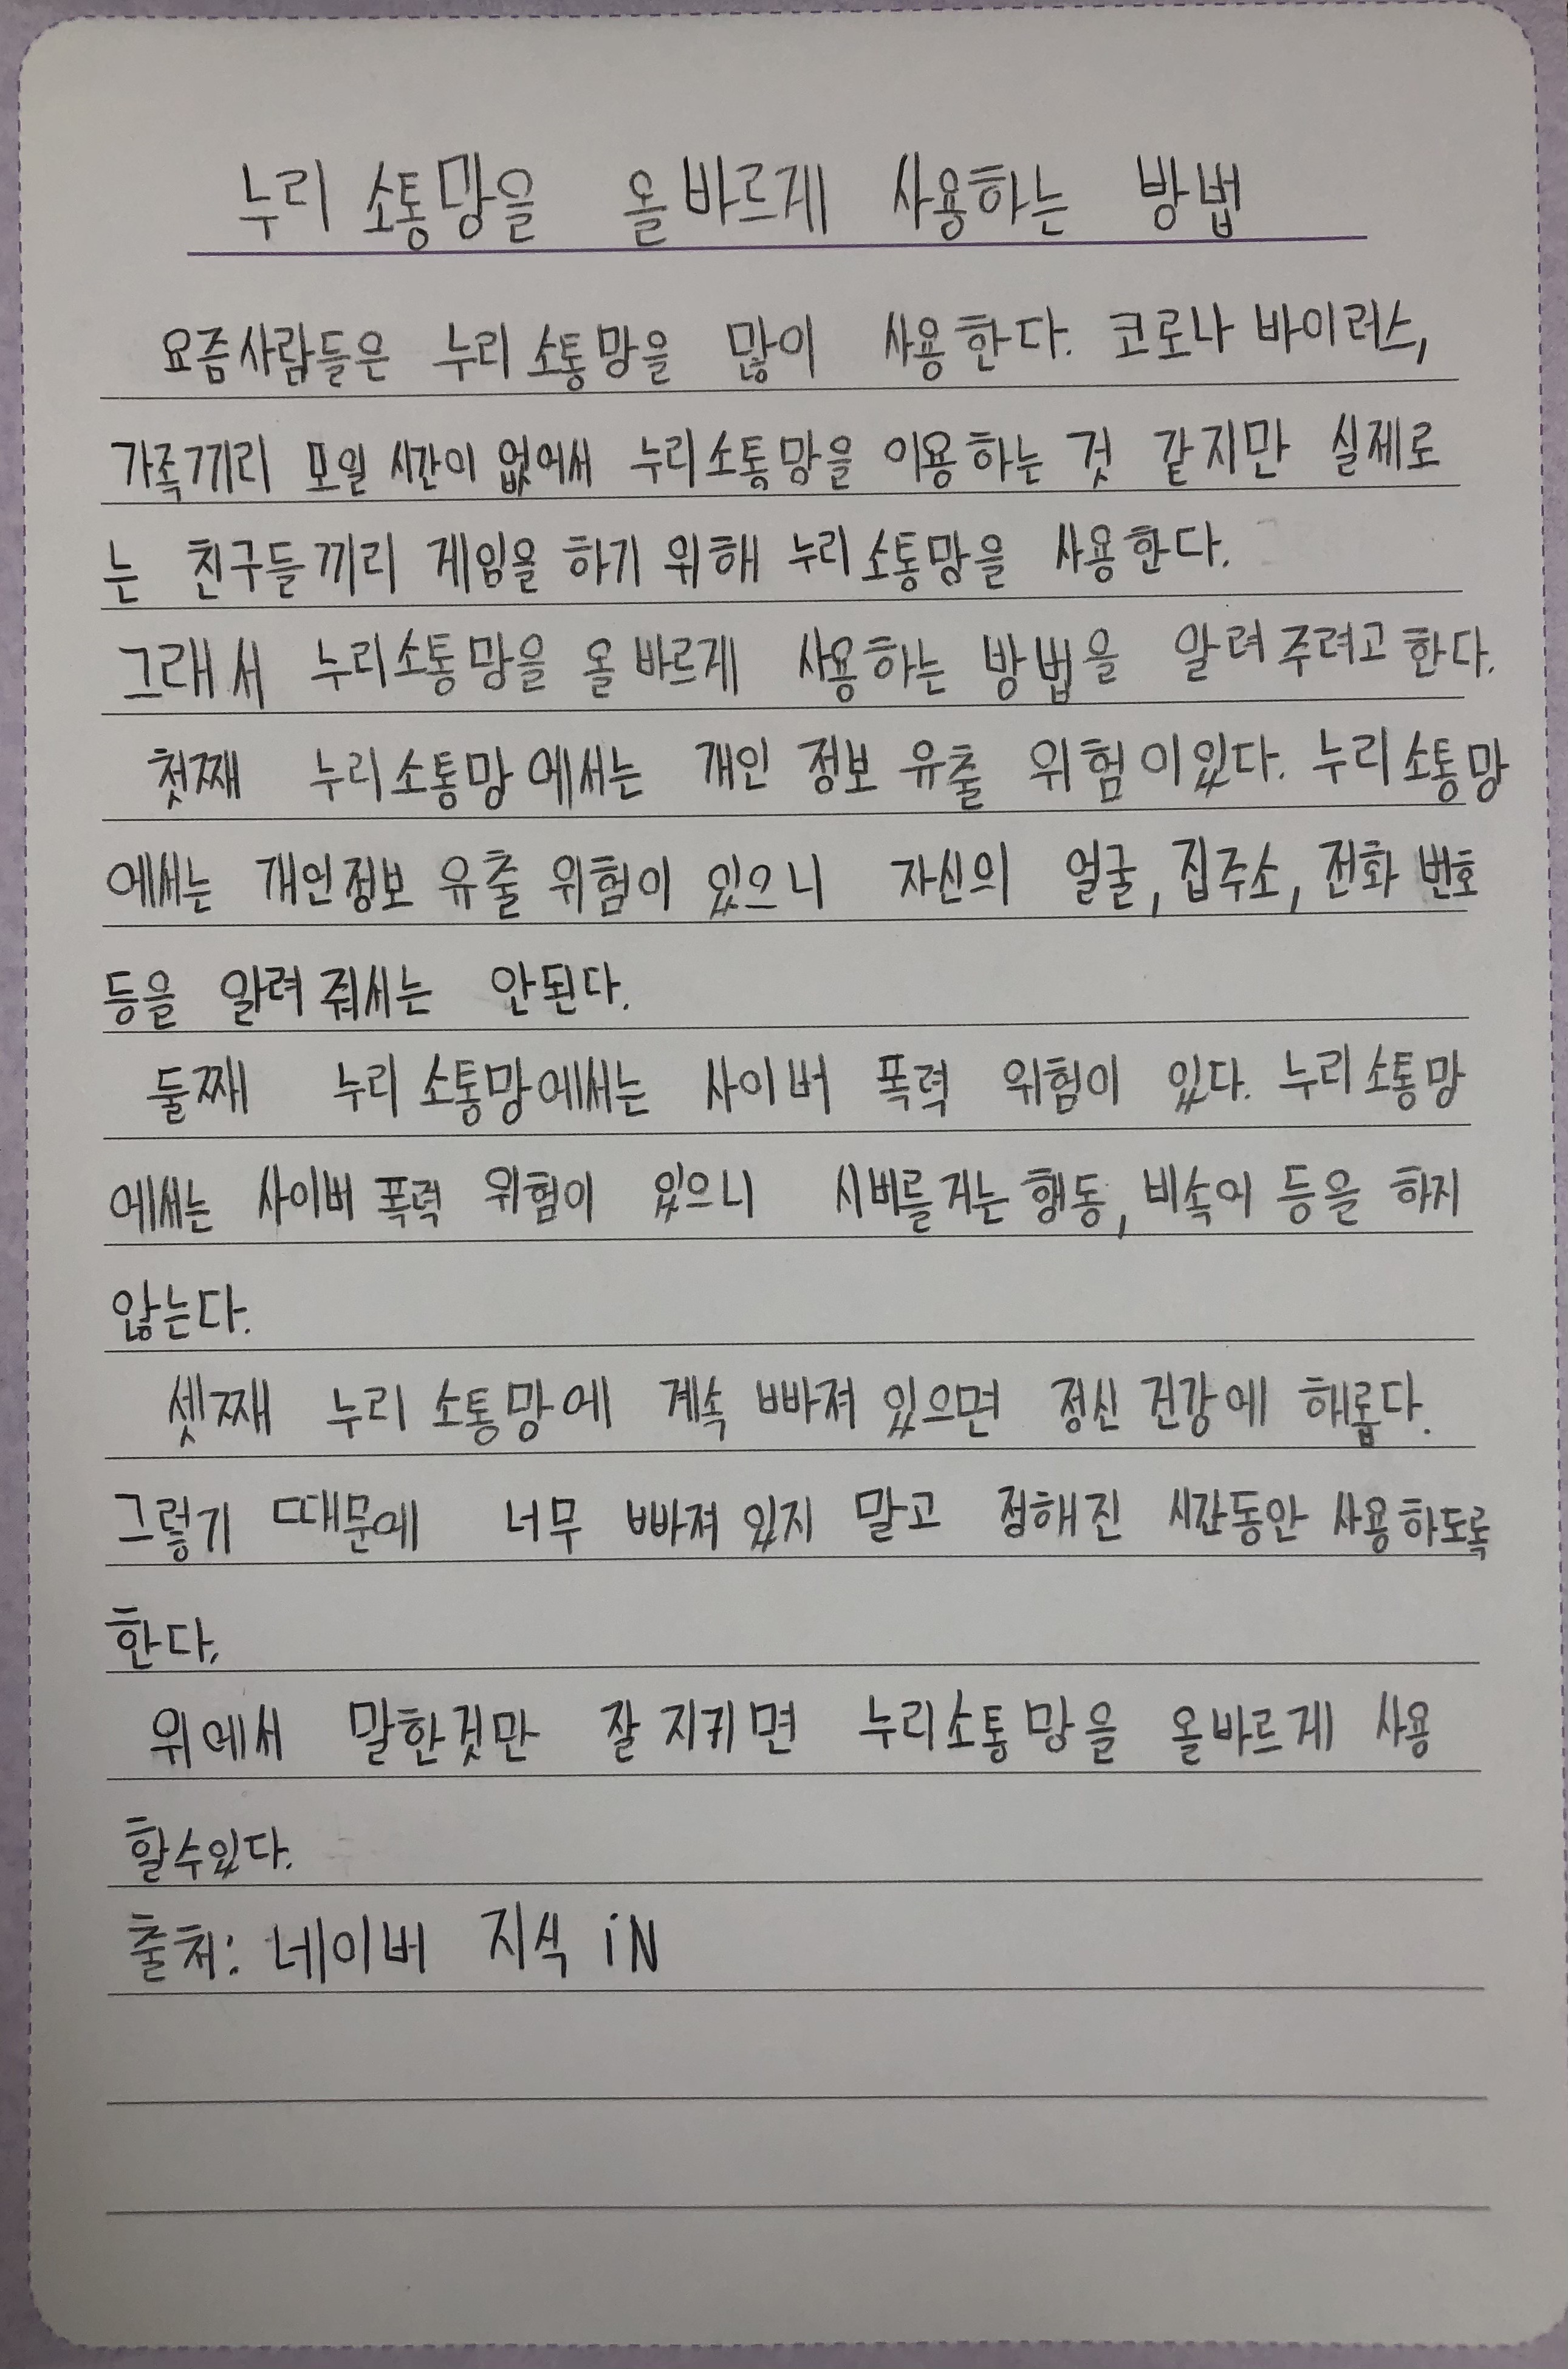 누리 소통망을 올바르게 사용하는 방법
요즘사람들은 누리 소통망을 많이 사용한다. 코로나 바이러스,
가족끼리 모일 시간이 없어서 누리소통망을 이용하는 것 같지만 실제로
는 친구들끼리 게임을 하기 위해 누리소통망을 사용한다.
그래서 누리소통망을 올바르게 사용하는 방법을 알려주려고한다.
첫째 누리소통망에서는 개인 정보 유출 위험이있다. 누리소통망
에서는 개인정보 유출 위험이 있으니 자신의 얼굴, 집주소, 전화 번호
등을 알려줘서는 안된다.
둘째 누리 소통망에서는 사이버 폭력 위험이 있다. 누리소통망
에서는 사이버폭력 위험이 있으니 시비를거는행동, 비속어 등을 하지
않는다.
셋째 누리 소통망에 계속 빠져 있으면 정신 건강에 해롭다.
그렇기 때문에 너무 빠져있지 말고 정해진 시간동안 사용하도록
한다.
위에서 말한것만 잘지키면 누리소통망을 올바르게 사용
할수있다.
출처: 네이버 지식 iN